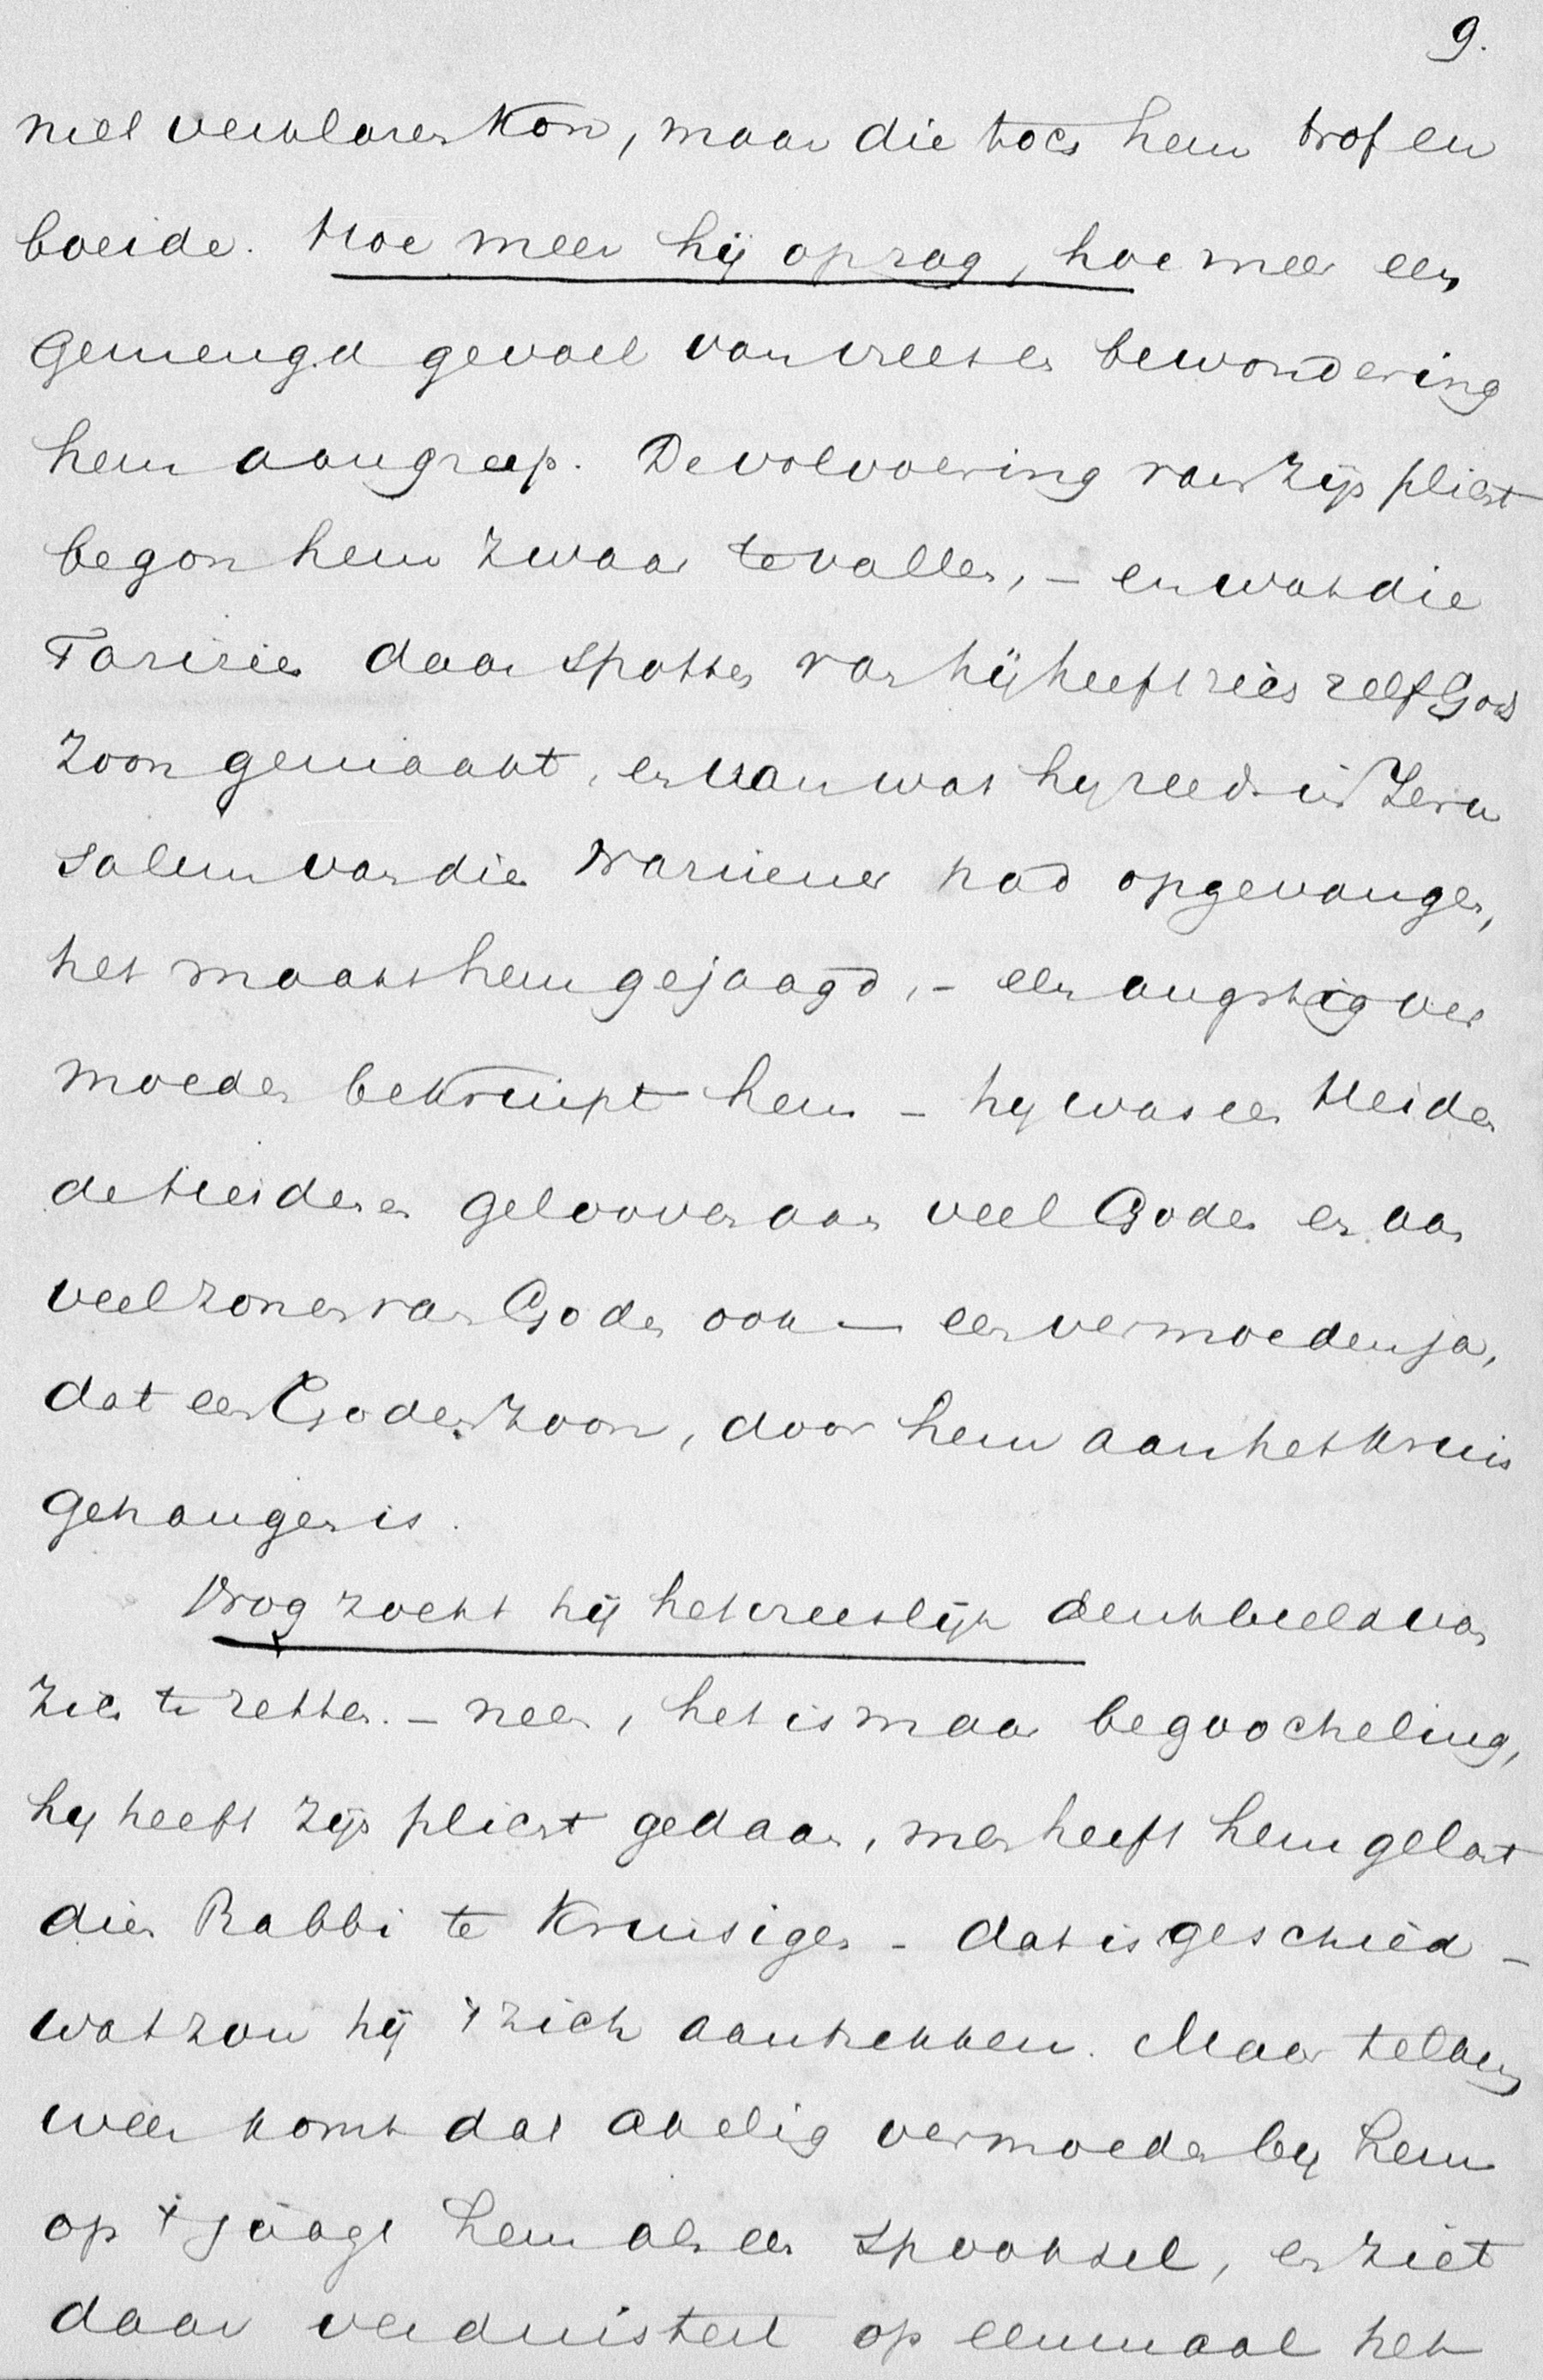 9.
niet verklaren kon, maar die toch hem trof en
boeide. Hoe meer hij opzag, hoe meer een
gemengd gevoel van vrees en bewondering
hem aangreep. De volvoering van zijn plicht
begon hem zwaar te vallen, – en wat die
Farizeën daar spotten van hij heeft zich zelf Gods
Zoon gemaakt, en van wat hij reeds in Jeru
salem van die Nazarener had opgevangen,
het maakt hem gejaagd, – een angstig ver
moeden bekruipt hem – hij was een Heiden
de Heidenen gelooven aan veel Goden en aan
veel zonen van Goden ook – een vermoeden ja,
dat een Godenzoon, door hem aan het kruis
gehangen is.
Nog zocht hij het vreeslijk denkbeeld van
zich te zetten. – neen, het is maar begoocheling,
hij heeft zijn plicht gedaan, men heeft hem gelast
dien Rabbi te Kruisigen – dat is geschied –
wat zou hij 't zich aantrekken. Maar telkens
weer komt dat akelig vermoeden bij hem
op 't jaagt hem als een spooksel, en ziet
daar verduistert op eenmaal het